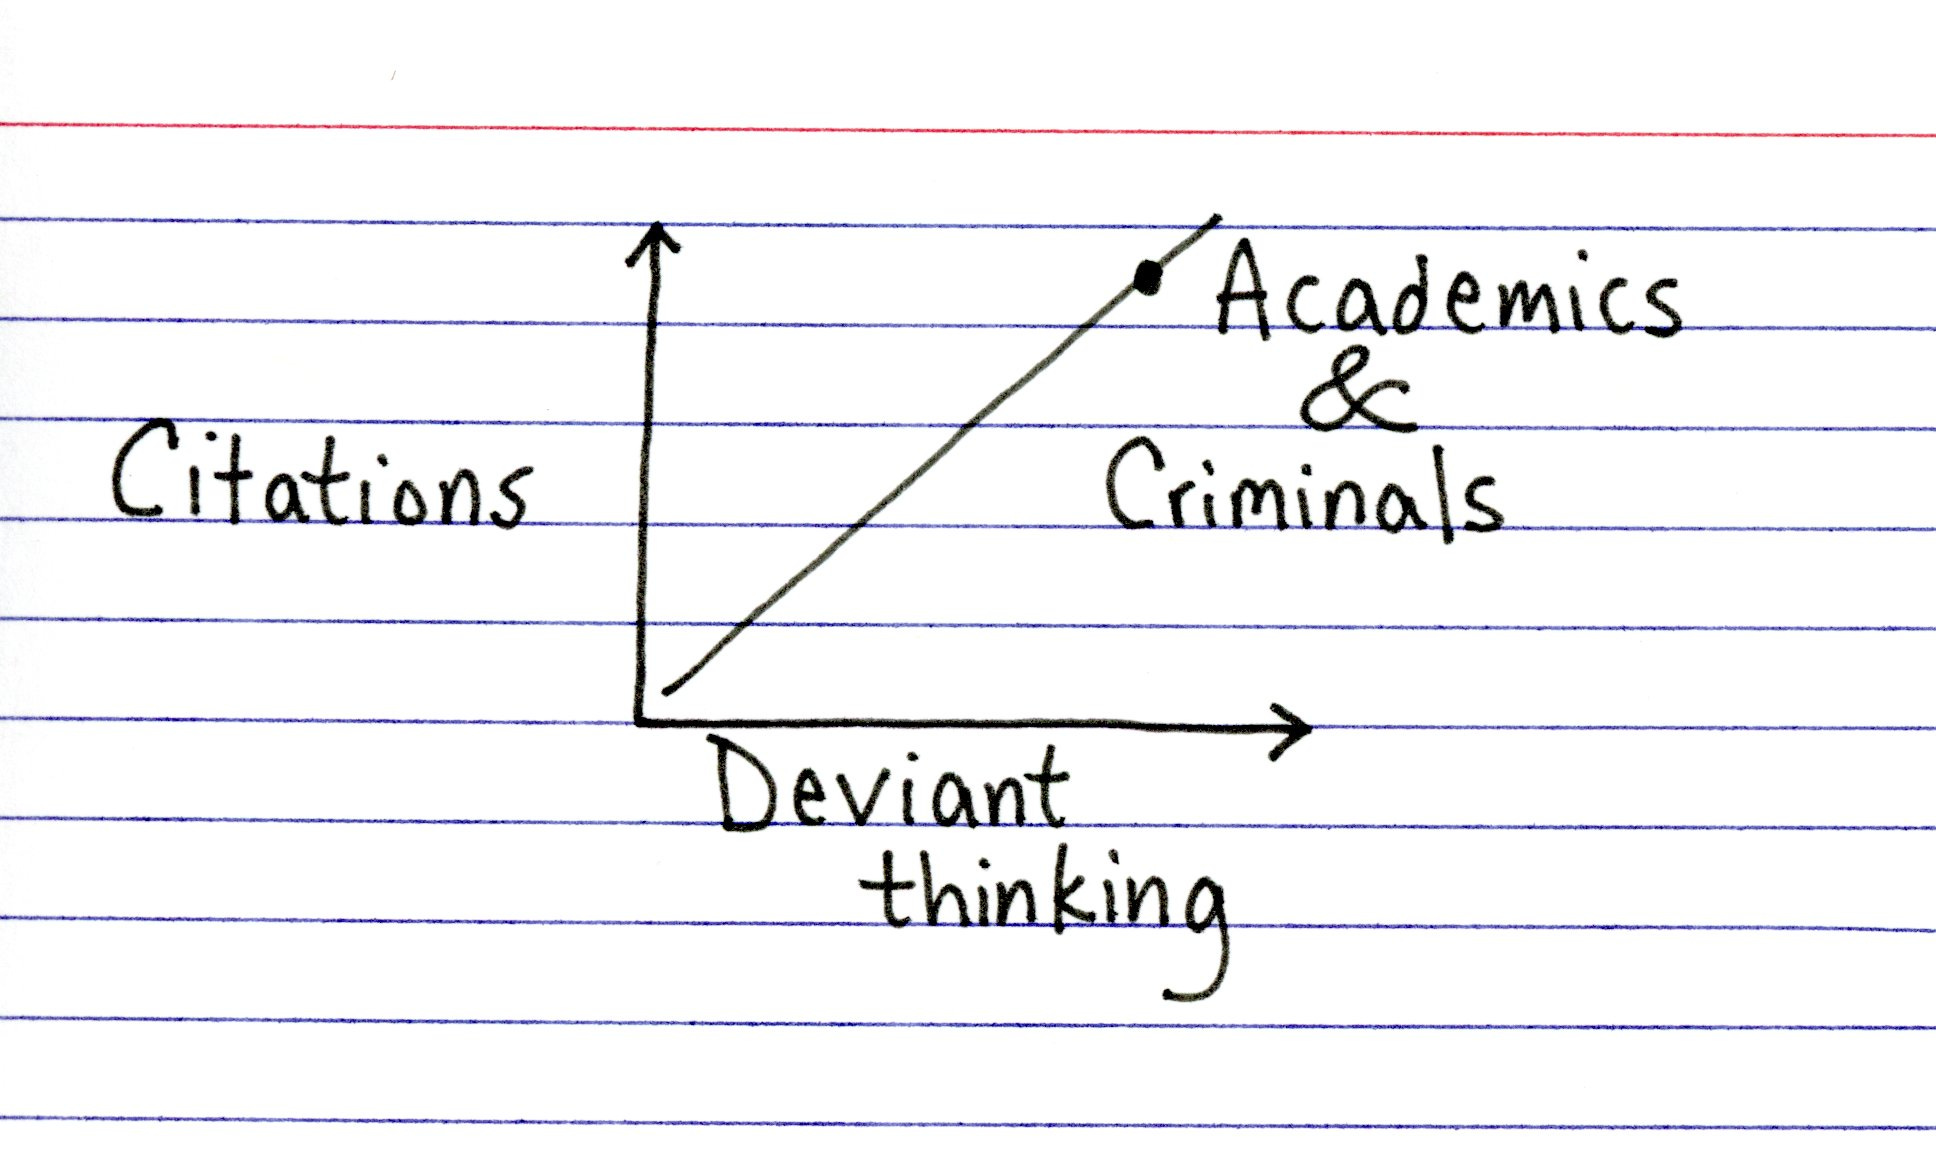 Citations
Academics
&
Criminals
Deviant
thinking